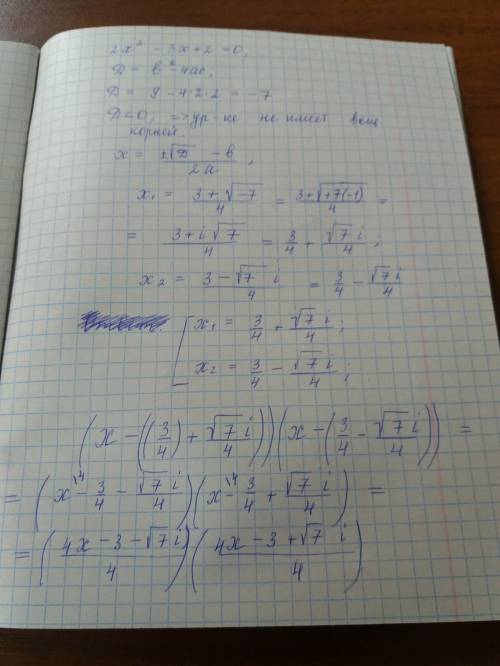 2x² - 3x + 2 = 0,
D = b² - 4ac,
D = 9 - 4·2·2 = -7
D < 0, => ур-ие не имеет вещ
корней.
x = (±√D - b)/2a,
x₁ = (3 + √-7)/4 = (3 + √+7(-1))/4 =
= (3 + i√7)/4 = 3/4 + √7i/4;
x₂ = (3 - √7 i)/4 = 3/4 - √7i/4
[ x₁ = 3/4 + √7i/4;
x₂ = 3/4 - √7i/4;
(x - ((3/4) + √7i/4))(x - (3/4 - √7i/4)) =
= (x\⁴ - 3/4 - √7i/4)(x\⁴ - 3/4 + √7i/4) =
= ((4x - 3 - √7i)/4)((4x - 3 + √7 i)/4)